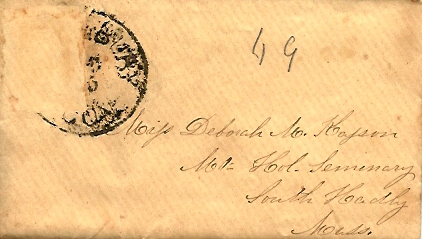 49
Miss Deborah M. Hapson
Mt. Hol. Seminary
South Hadly
Mass.